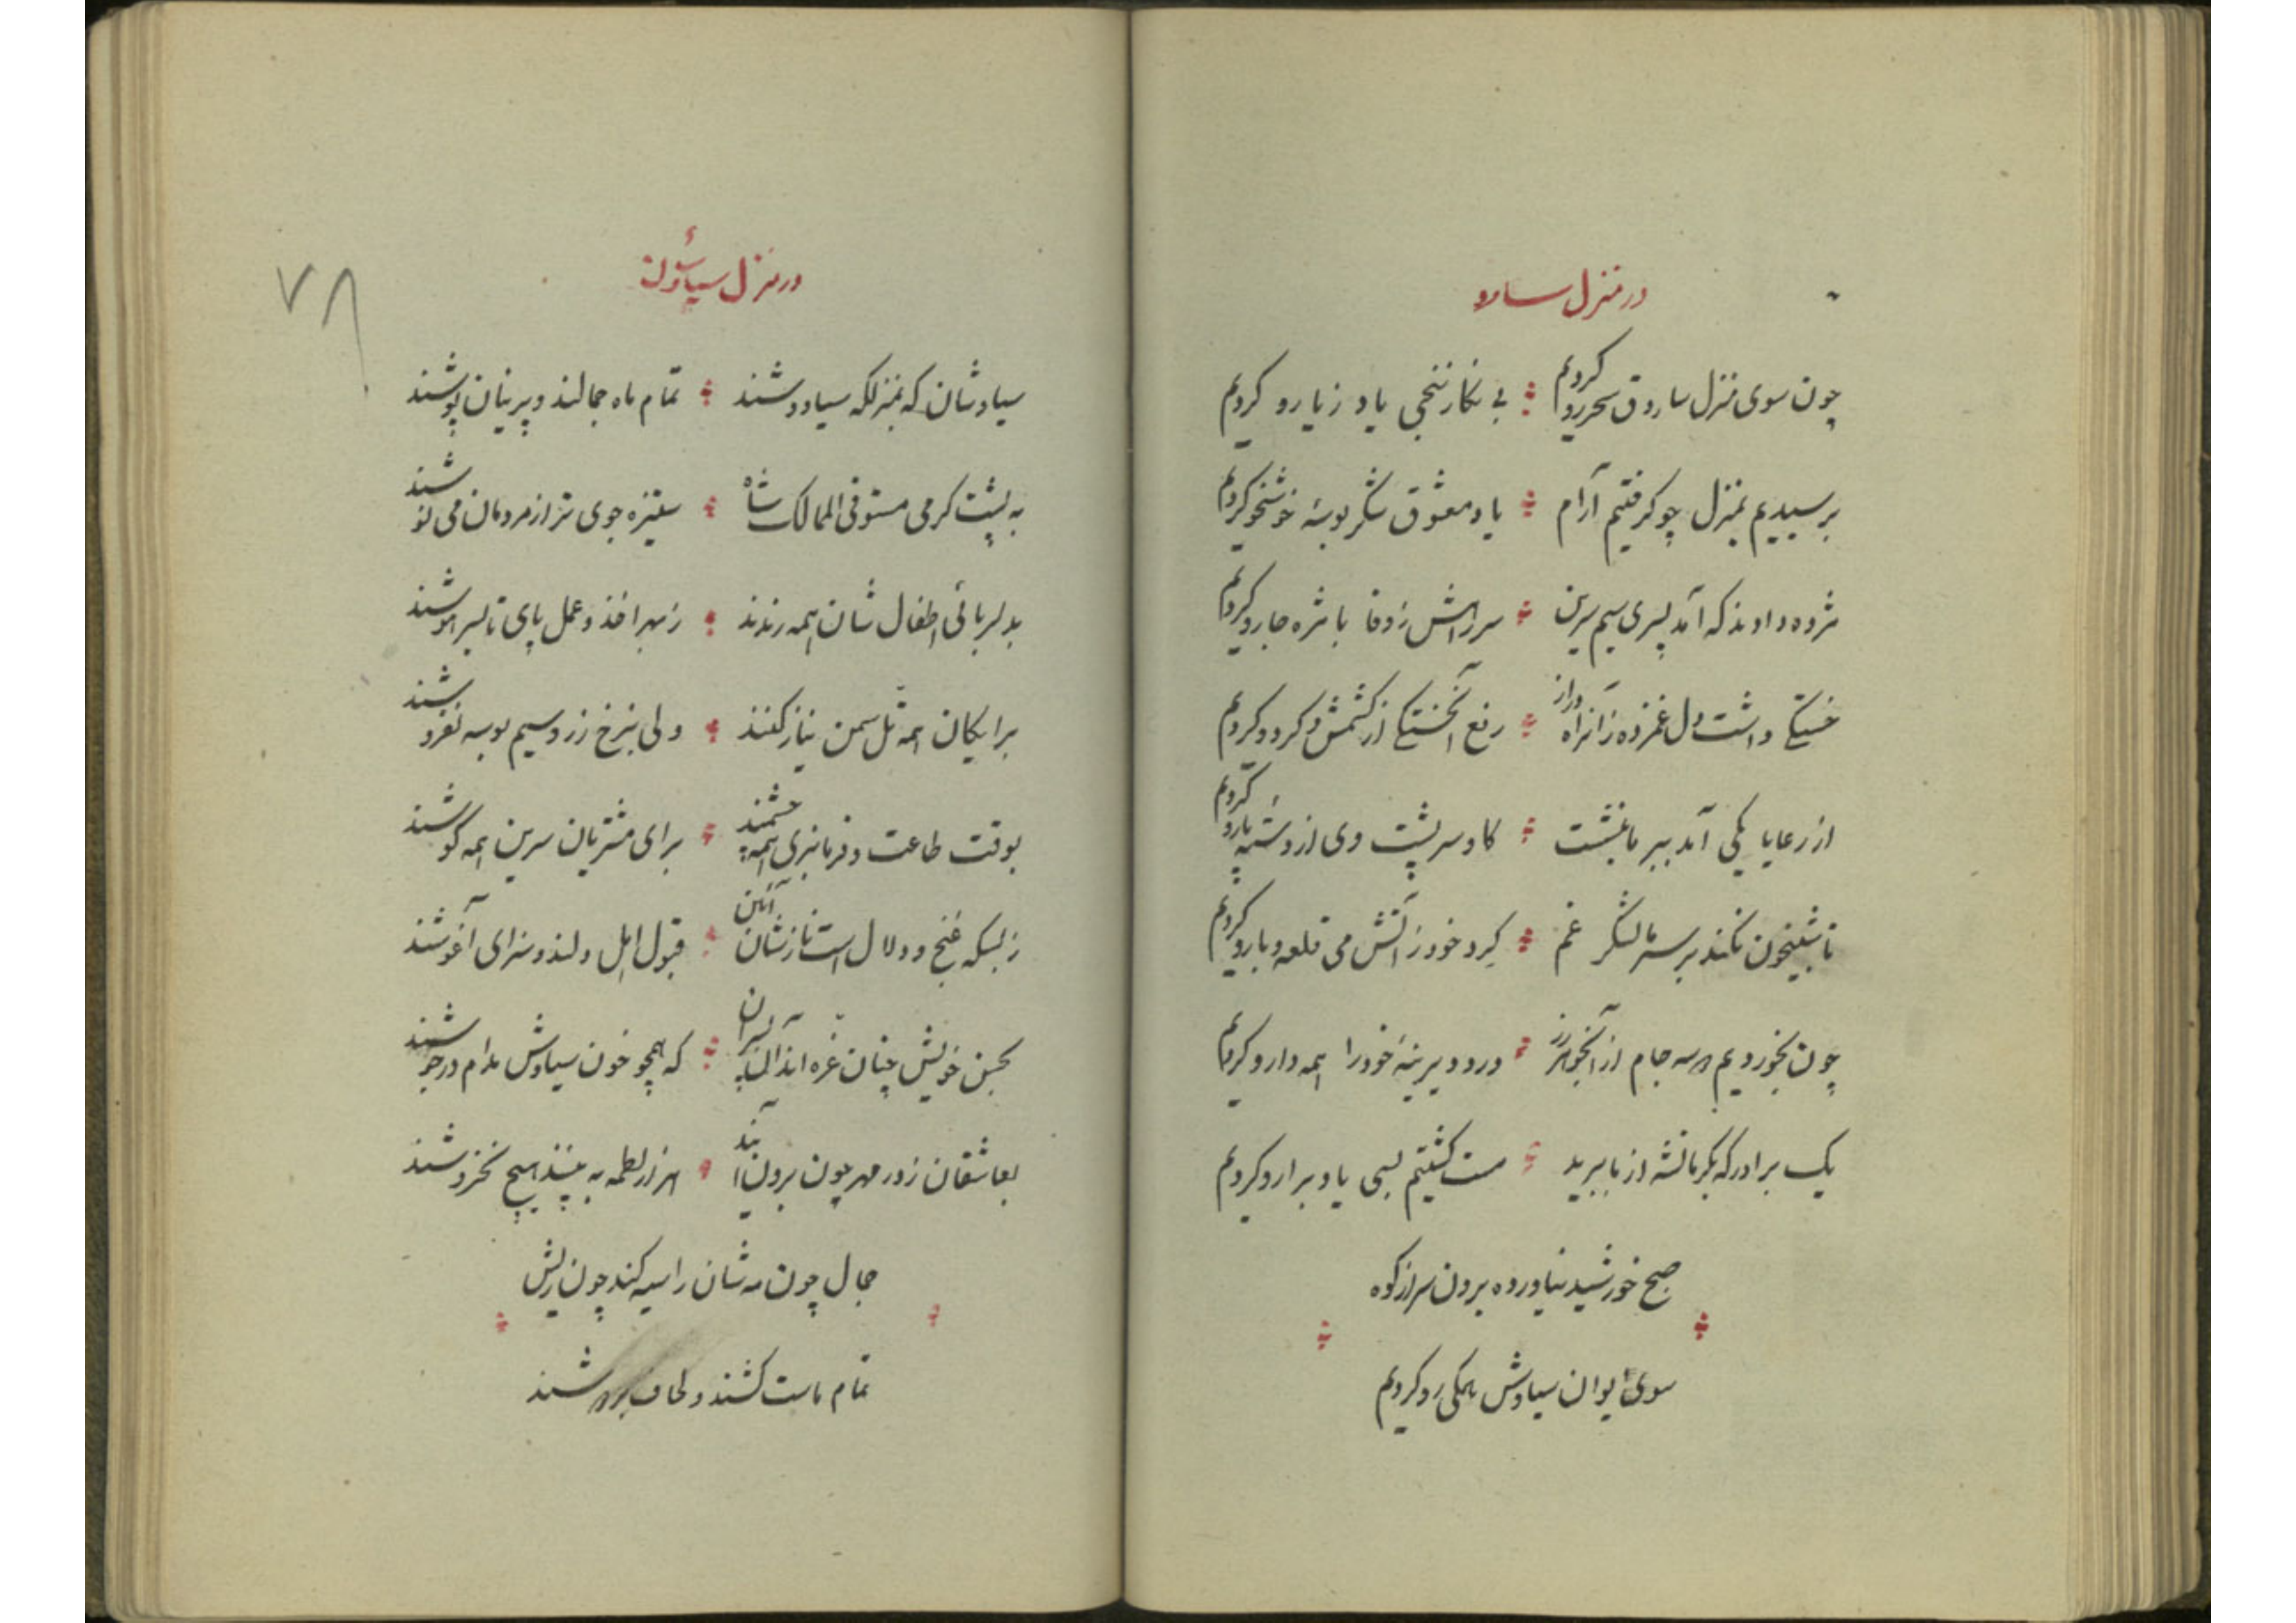 در منزل سارو
چون سوی منزل ساروق سحر رو کردیم
بی نکار ننجی یاد ز یارو کردیم
برسیدیم بمنزل چو کرفتیم آرام
یاد معشوق شکر بوسهٔ خوشخو کردیم
مژده دادند که آمد پسری سیم سرین
سر راهش ز وفا با مژه جارو کردیم
خستکی داشت دل غمزده زانراه دراز
رفع آنخستکی از کشمش و کردو کردیم
از رعایا یکی آمد ببر ما بنشست
کاوسر پشت وی از دستهٔ پارو کردیم
تا شبیخون نکند بر سر ما لشکر غم
کرد خود ز آتش می قلعه و بارو کردیم
چون بخوردیم دو سه جام از آنجوهر رز
درد دیرینهٔ خود را همه دارو کردیم
یک برادر که بکرمانشه از ما ببرید
مست کشتیم بسی یاد برارو کردیم
صبح خورشید نیاورده برون سر از کوه
سوی ایوان سیاوش همکی رو کردیم
در منزل سیاوشان
سیاوشان که بمنزلکه سیاووشند
تمام ماه جمالند و پرنیان پوشند
به پشت کرمی مستوفی الممالک شاه
ستیزه جوی تر از مردمان می نوشند
بدلربائی اطفال شان همه رندند
ز بهر اخذ و عمل پای تا بسر هوشند
برایکان همه تل سمن نیاز کنند
ولی بنرخ زر و سیم بوسه نفروشند
بوقت طاعت و فرمانبری همه چشمند
برای مشتریان سرین همه کوشند
ز بسکه غنج و دلال است نازشان آئین
قبول اهل دلند و سزای آغوشند
بحسن خویش چنان غره اند آن پسران
که همچو خون سیاوش مدام در جوشند
بعاشقان ز در مهر چون برون آیند
هزار لطمه به بینند هیچ نخروشند
جمال چون مه شان را سیه کند چون ریش
تمام ماست کشند و لحاف بردوشند
۷۸